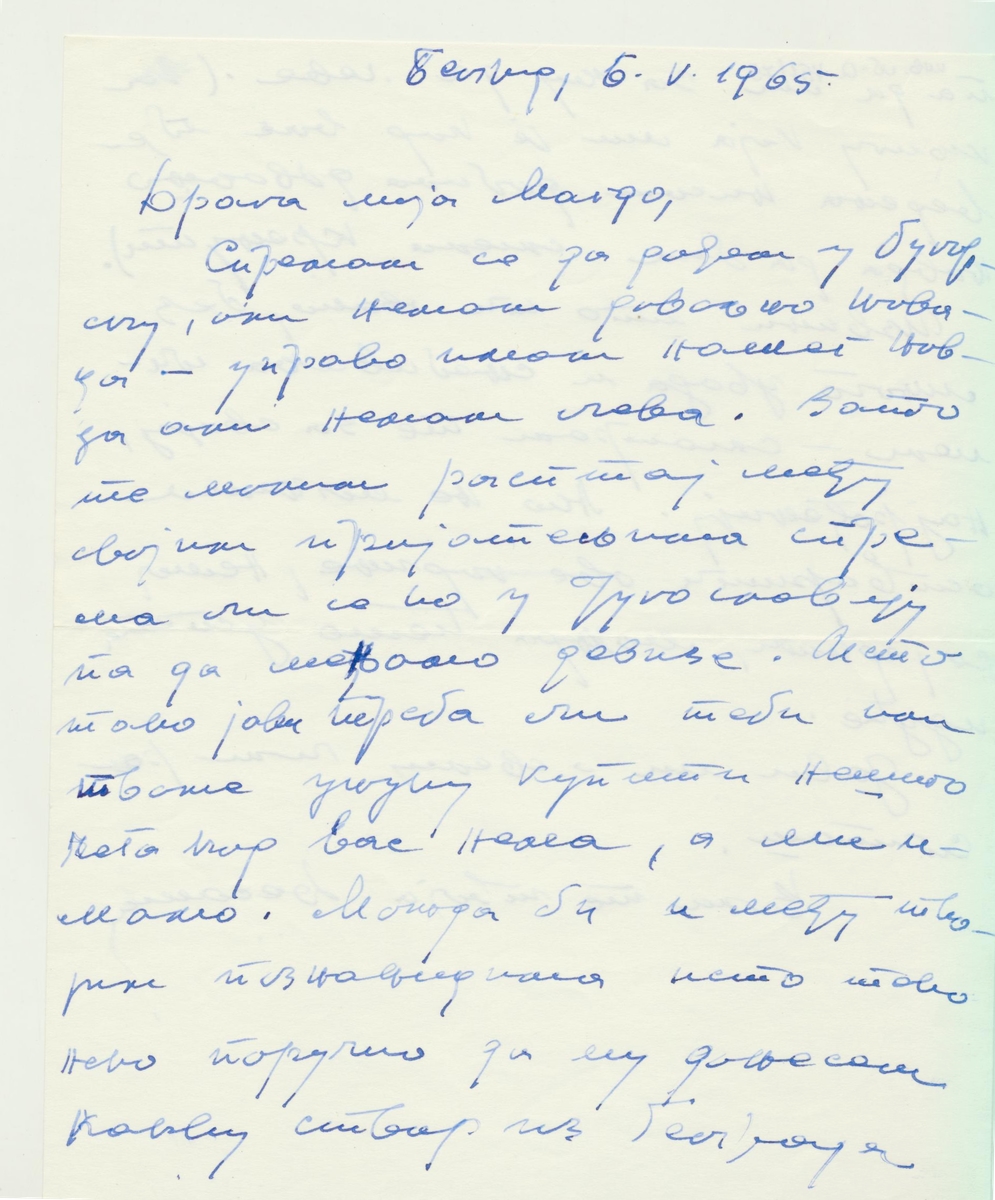 Београд, 6. V. 1965.
Драга моја Магдо,
Спремам се да дођем у Бугар-
ску, али немам довољно нова-
ца – управо имам нашег нов-
ца али немам лева. Зато
те молим распитај међу
својим пријатељима спре-
ма ли се ко у Југославију
па да мењамо девизе. Исто
тако јави треба ли теби или
твоме унуку купити нешто
чега код вас нема, а ми и-
мамо. Можда би и међу тво-
јим познаницима исто тако
неко поручио да му донесем
какву ствар из Београда